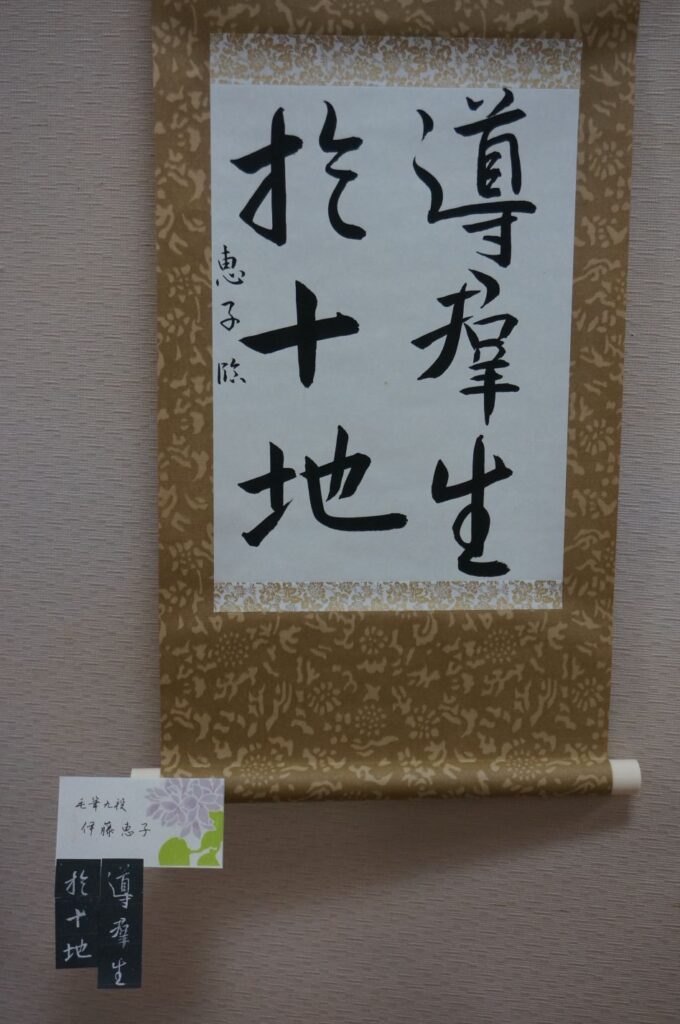 導群生
於十地
恵子臨
毛筆九段
伊藤恵子
導群生
於十地